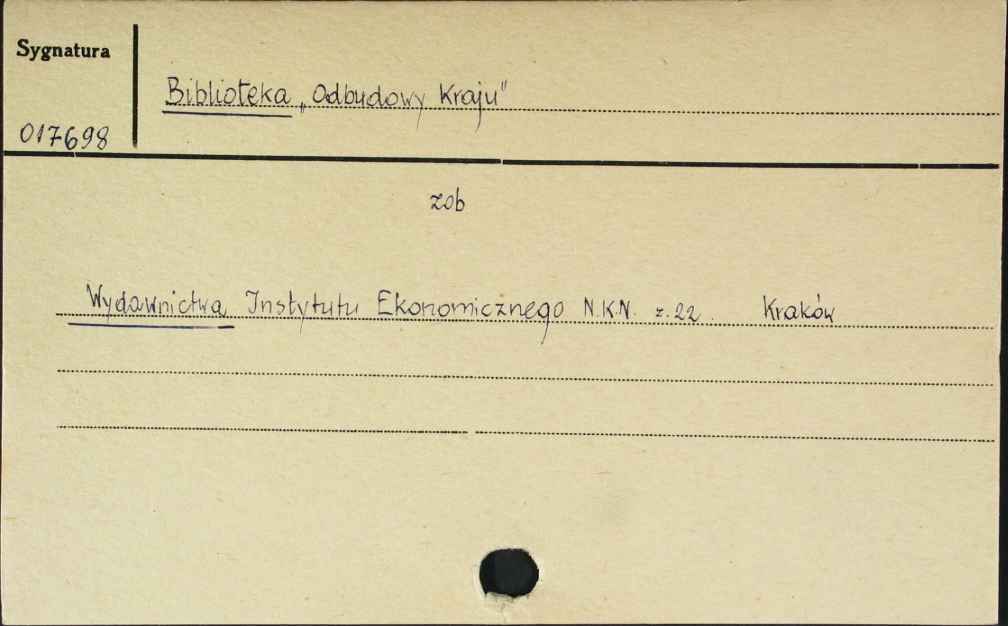 Sygnatura
Biblioteka „Odbudowy Kraju”
017698
zob
Wydawnictwa Instytutu Ekonomicznego N.K.N. z. 22. Kraków